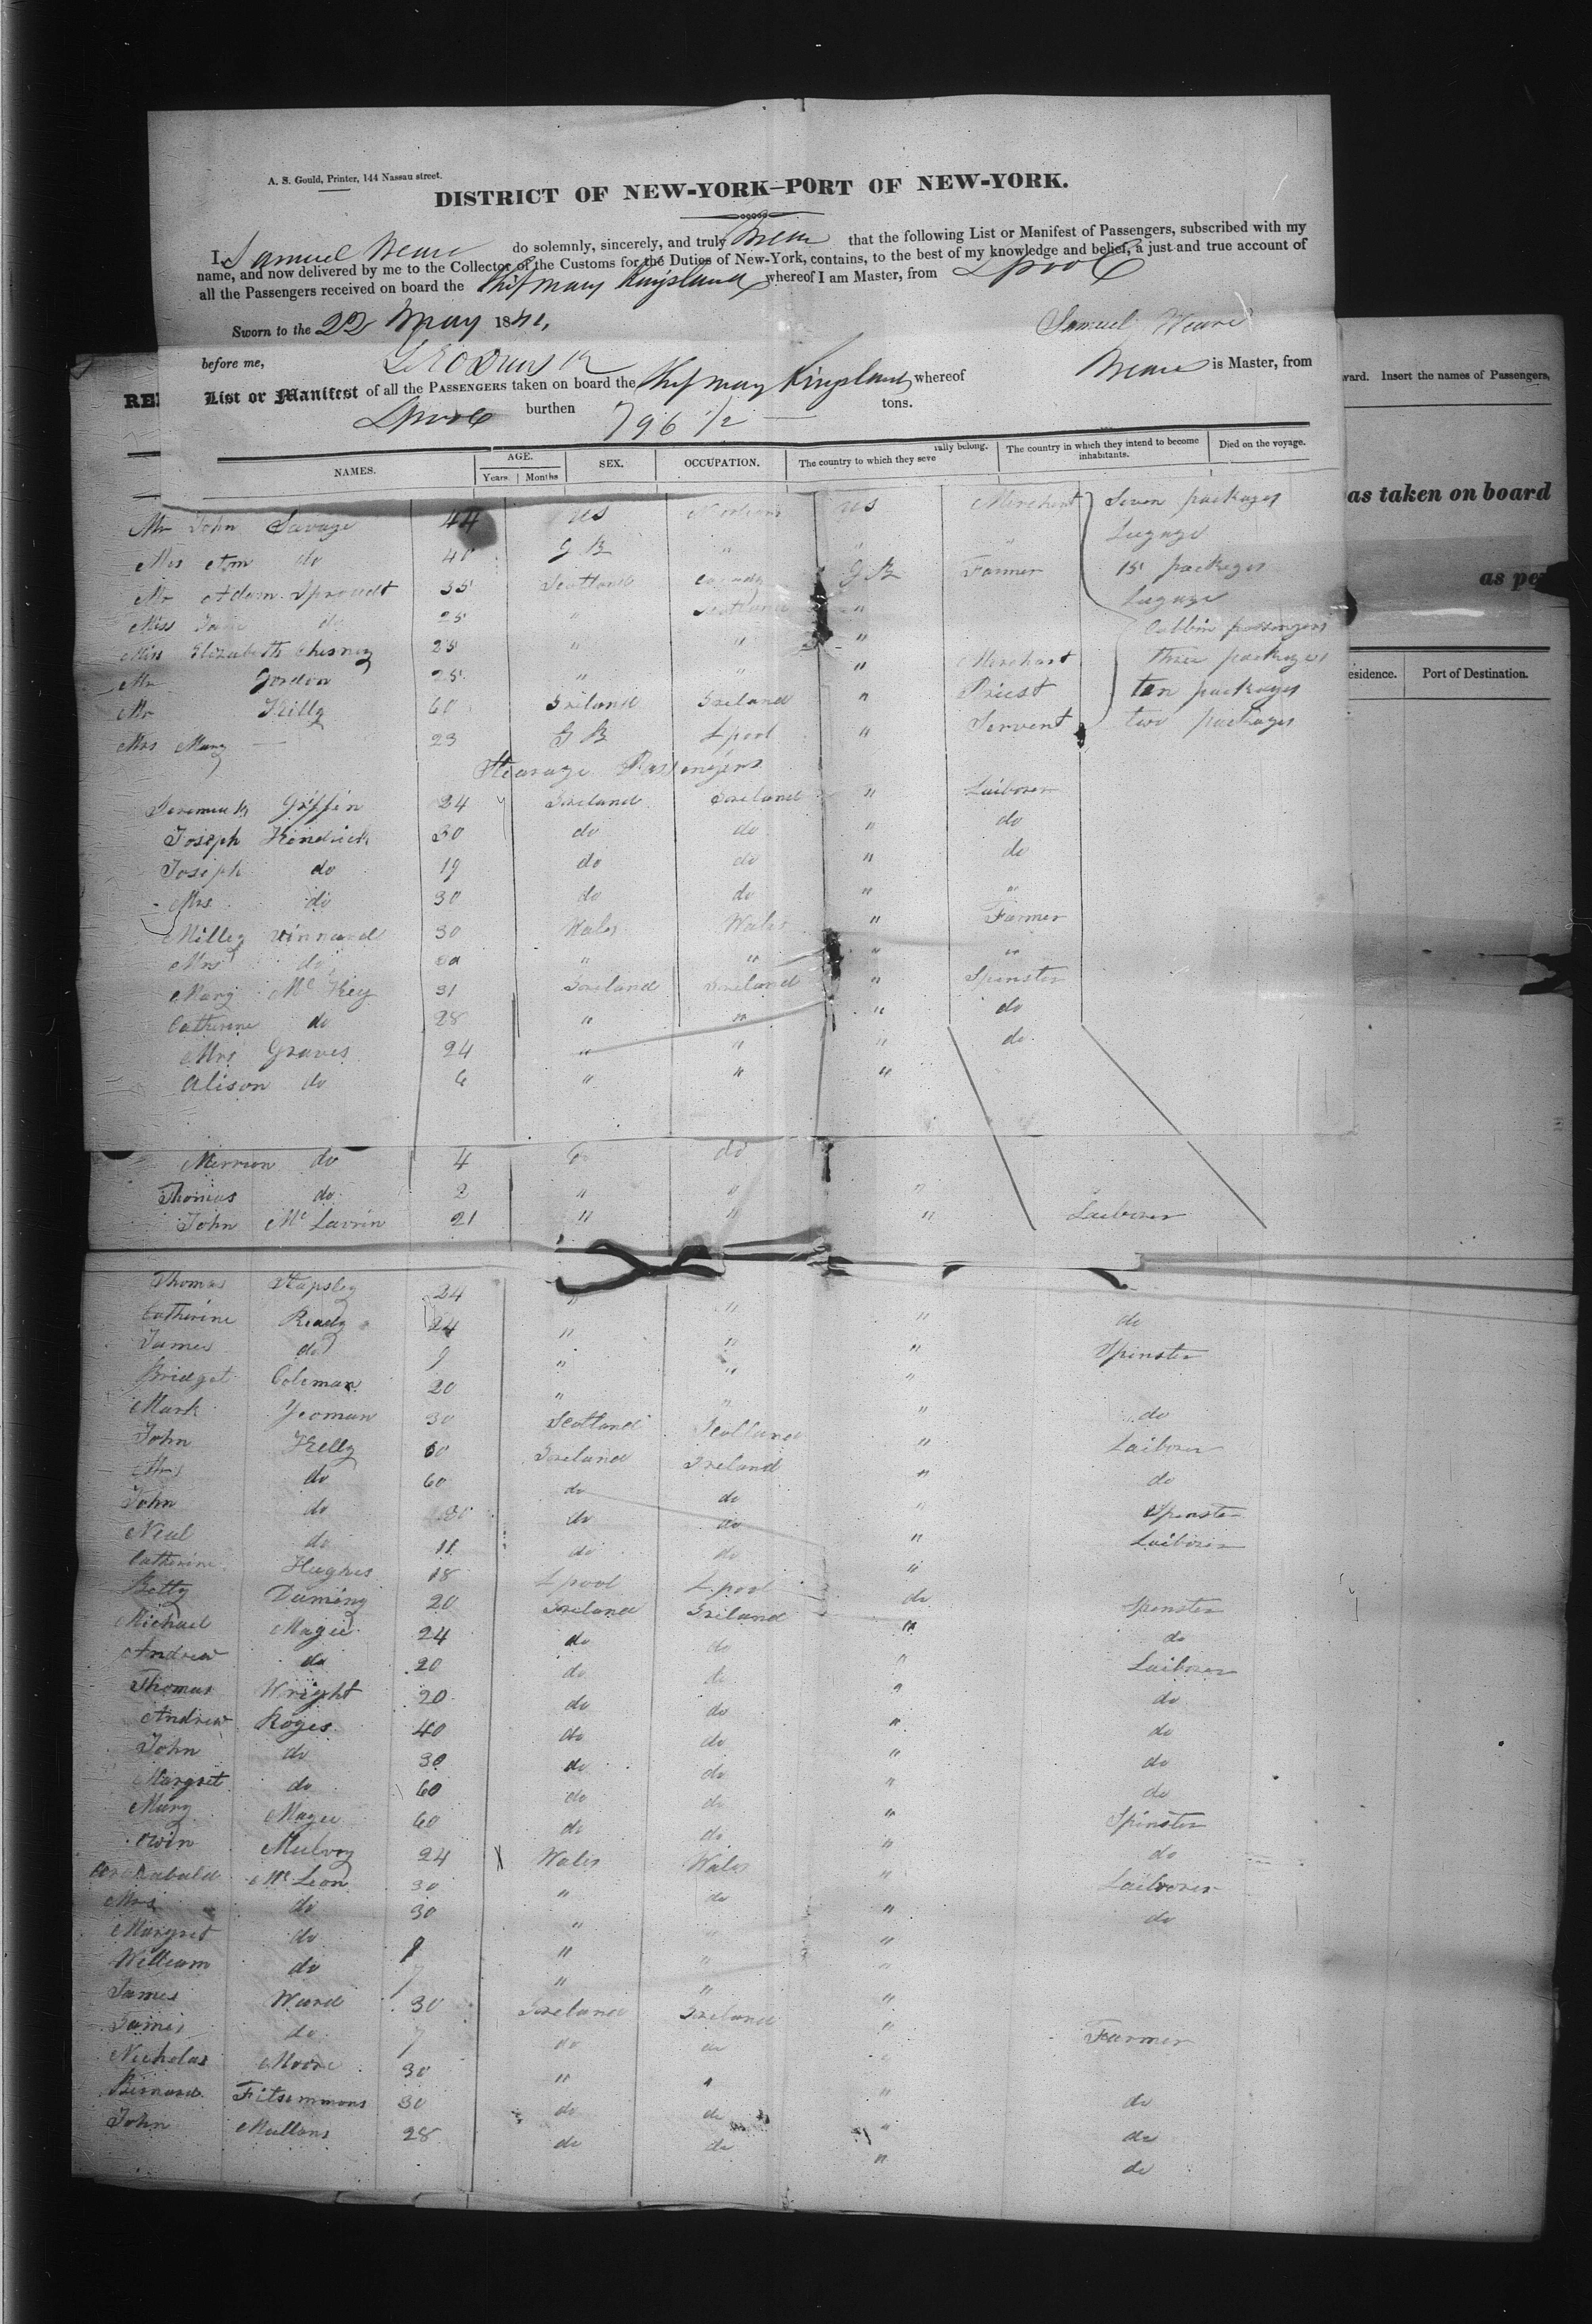 A. S. Gould, Printer, 144 Nassau street.
DISTRICT OF NEW-YORK—PORT OF NEW-YORK.
I, Samuel Weare do solemnly, sincerely, and truly that the following List or Manifest of Passengers, subscribed with my
name, and now delivered by me to the Collector of the Customs for the Duties of New-York, contains, to the best of my knowledge and belief, a just and true account of
all the Passengers received on board the Ship Mary Kingsland whereof I am Master, from Lpool
Sworn to the 22 May 1841, Samuel Weare
before me,
List or Manifest of all the PASSENGERS taken on board the Ship Mary Kingsland whereof Weare is Master, from
Lpool burthen 796 1/2 tons.
ward. Insert the names of Passengers,
as taken on board
as pe
esidence. Port of Destination.
NAMES. AGE. Years Months SEX. OCCUPATION. The country to which they seve rally belong. The country in which they intend to become inhabitants. Died on the voyage.
Mr John Savage 44 US US Merchant Seven packages
Mrs Ann do 40 G B " " " Lugage
Mr Adam Sproudt 35 Scotland Canada G B Farmer 15 packages
Miss Jane do 25 " Scotland " Lugage
Miss Elizabeth Chesney 25 " " " Cabbin passengers
Mr Gordon 25 " " " Merchant three packages
Mr Killy 60 Ireland Ireland " Priest ten packages
Mrs Mary — 23 G B Lpool " Servent two packages
Stearage Passengers
Jeremiah Griffin 24 Ireland Ireland " Laiborer
Joseph Kendrick 30 do do " do
Joseph do 19 do do " do
Mrs do 30 do do " "
Milley Uinnard 30 Wales Wales " Farmer
Mrs do " " " "
Mary Mc Key 31 Ireland Ireland " Spinster
Catherine do 28 " " " do
Mrs Graves 24 " " " do
Alison do 6 " " "
Merrion do 4 do
Thomas do 2 " " "
John Mc Lavrin 21 " " " Laiborer
Thomas Hapsley 24 " " " do
Catherine Ready 24 " " " Spinster
James do 9 " " "
Bridget Coleman 20 " " " do
Mark Yeoman 30 Scotland Scotland " Laiborer
John Kelly 60 Ireland Ireland " do
Mrs do 60 do do " Spinster
John do 30 do do " Laiborer
Neal do 11 do do "
Catherine Hughes 18 Lpool Lpool do Spinster
Betty Duming 20 Ireland Ireland " do
Michael Magee 24 do do " Laiborer
Andrew do 20 do do " do
Thomas Wright 20 do do " do
Andrew Roges 40 do do " do
John do 30 do do " do
Margret do 60 do do " Spinster
Mary Magee 60 do do " do
Owin Mulvoy 24 Wales Wales " Laiborer
Archabald Mc Leon 30 " do " do
Mrs do 30 " " "
Margret do 9 " " "
William do 7 " " "
James Ward 30 Ireland Ireland " Farmer
James do 7 do do "
Nicholas Moore 30 " " " do
Bernard Fitsemmons 30 do do " do
John Mullons 28 do do " do